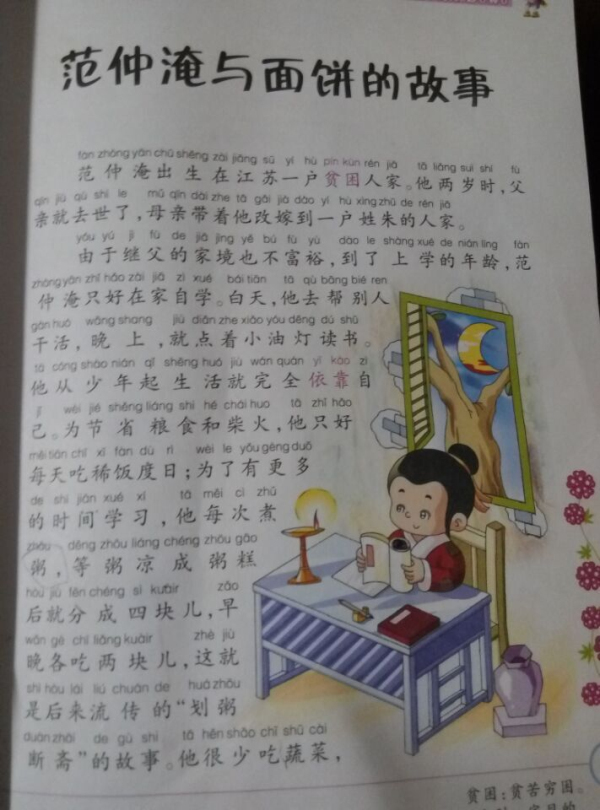 范仲淹与面饼的故事
fàn zhòng yān chū shēng zài jiāng sū yí hù pín kùn rén jiā tā liǎng suì shí fù
范仲淹出生在江苏一户贫困人家。他两岁时，父
qīn jiù qù shì le mǔ qīn dài zhe tā gǎi jià dào yí hù xìng zhū de rén jiā
亲就去世了，母亲带着他改嫁到一户姓朱的人家。
yóu yú jì fù de jiā jìng yě bú fù yù dào le shàng xué de nián líng fàn
由于继父的家境也不富裕，到了上学的年龄，范
zhòng yān zhǐ hǎo zài jiā zì xué bái tiān tā qù bāng bié ren
仲淹只好在家自学。白天，他去帮别人
gàn huó wǎng shang jiù diǎn zhe xiǎo yóu dēng dú shū
干活，晚上，就点着小油灯读书。
tā cóng shào nián qǐ shēng huó jiù wán quán yī kào zì
他从少年起生活就完全依靠自
jǐ wèi jié shěng liáng shi hé chái huo tā zhǐ hǎo
己。为节省粮食和柴火，他只好
měi tiān chī xī fàn dù rì wèi le yǒu gèng duō
每天吃稀饭度日；为了有更多
de shí jiān xué xí tā měi cì zhǔ
的时间学习，他每次煮
zhōu děng zhōu liáng chéng zhōu gāo
粥，等粥凉成粥糕
hòu jiù fēn chéng sì kuàir zǎo
后就分成四块儿，早
wǎn gè chī liǎng kuàir zhè jiù
晚各吃两块儿，这就
shì hòu lái liú chuán de huá zhōu
是后来流传的“划粥
duàn zhāi de gù shi tā hěn shǎo chī shū cài
断斋”的故事。他很少吃蔬菜，
贫困：贫苦穷困。